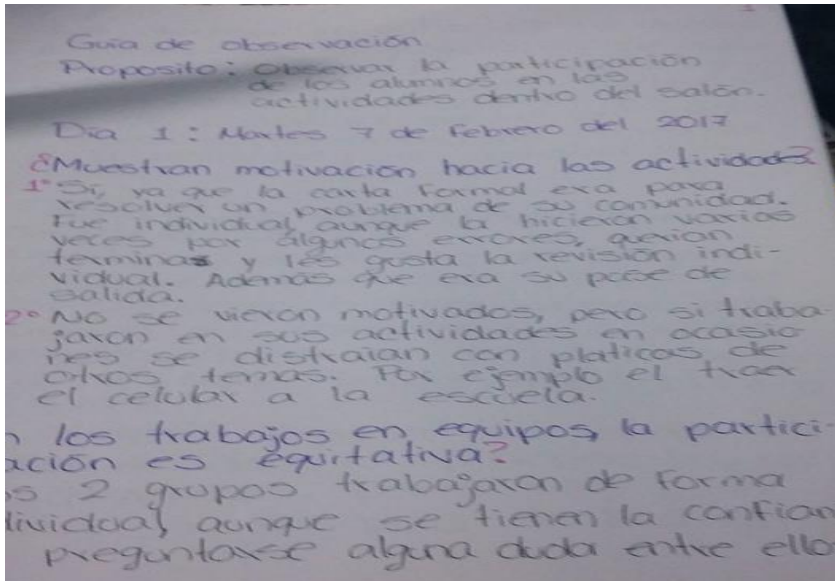 Guia de observación
Proposito: Observar la participación
de los alumnos en las
actividades dentro del salón.
Dia 1: Martes 7 de Febrero del 2017
¿Muestran motivación hacia las actividades?
1° Si, ya que la carta formal era para
resolver un problema de su comunidad.
Fue individual, aunque la hicieron varias
veces por algunos errores, querian
terminar y les gusta la revisión indi-
vidual. Además que era su pase de
salida.
2° No se vieron motivados, pero si traba
jaron en sus actividades en ocasio
nes se distraian con platicas de
otros temas. Por ejemplo el traer
el celular a la escuela.
n los trabajos en equipos, la partici-
ación es equitativa?
os 2 grupos trabajaron de forma
dividual, aunque se tienen la confian
preguntarse alguna duda entre ello